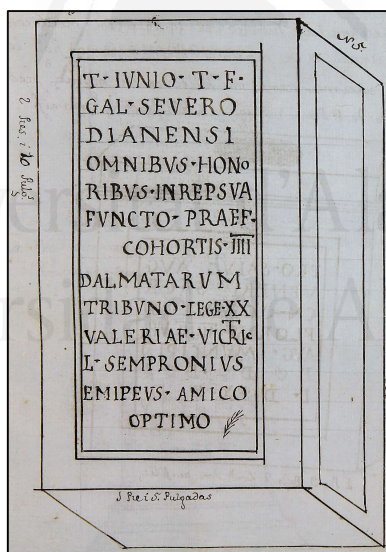 Nº 5.
T · IVNIO · T · F ·
GAL · SEVERO
DIANENSI
OMNIBVS · HONO
RIBVS · IN REP SVA
FVNCTO · PRAEF ·
COHORTIS · IIII
DALMATARVM
TRIBVNO · LEGE · XX
VALERIAE · VICTRIC
L · SEMPRONIVS
EMIPEVS · AMICO
OPTIMO
2 Pies, i 10 Pulgs
1 Pie i 5 Pulgadas